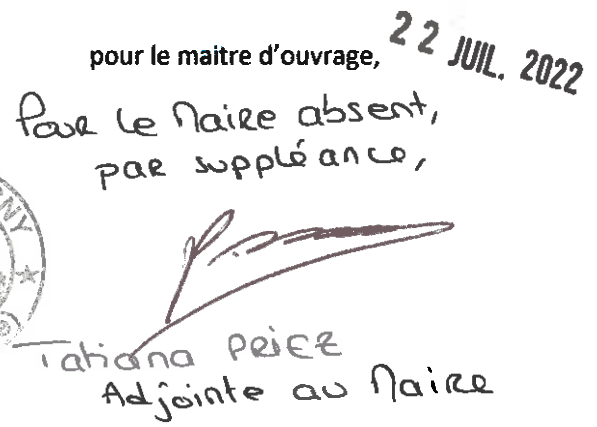 pour le maitre d'ouvrage,
22 JUIL. 2022
Pour le Maire absent,
par suppléance,
Tatiana PRIEZ
Adjointe au Maire